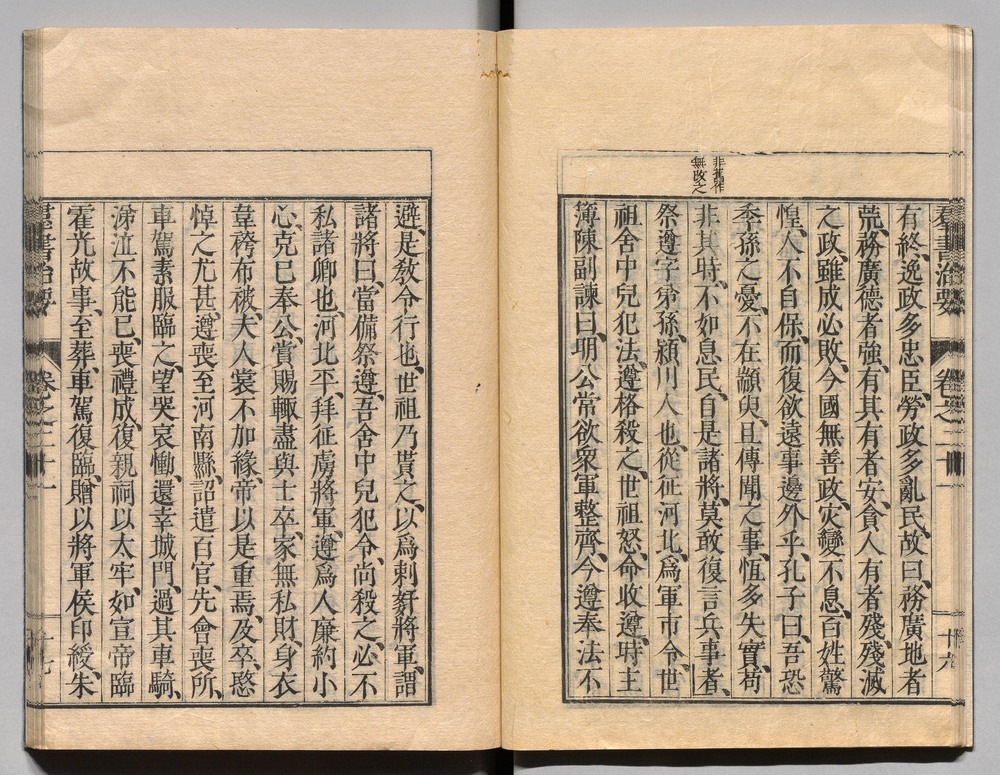 羣書治要 卷之二十一 十六
非其作
無改之
有終、逸政多忠臣、勞政多亂民、故曰、務廣地者
荒、務廣德者強、有其有者安、貪人有者殘、殘滅
之政、雖成必敗、今國無善政、灾變不息、百姓驚
惶、人不自保、而復欲遠事邊外乎、孔子曰、吾恐
季孫之憂、不在顓臾、且傳聞之事、恆多失實、苟
非其時、不如息民、自是諸將、莫敢復言兵事者、
祭遵字弟孫、潁川人也、從征河北、爲軍市令、世
祖舍中兒犯法、遵格殺之、世祖怒、命收遵、時主
簿陳副諫曰、明公常欲衆軍整齊、今遵奉法不
避、是敎令行也、世祖乃貰之、以爲刺姧將軍、謂
諸將曰、當備祭遵、吾舍中兒犯令、尚殺之、必不
私諸卿也、河北平、拜征虜將軍、遵爲人廉約小
心、克己奉公、賞賜輙盡與士卒、家無私財、身衣
韋袴布被、夫人裳不加緣、帝以是重焉、及卒、愍
悼之尤甚、遵喪至河南縣、詔遣百官、先會喪所、
車駕素服臨之、望哭哀慟、還幸城門、過其車騎、
涕泣不能已、喪禮成、復親祠以太牢、如宣帝臨
霍光故事、至葬、車駕復臨、贈以將軍侯印綬、朱
羣書治要 卷之二十一 十七